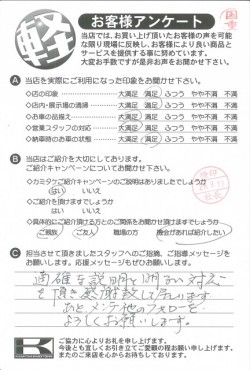 軽
お客様アンケート
当店では、お買い上げ頂いたお客様の声を可能
な限り現場に反映し、お客様により良い商品と
サービスを提供する事に努めています。
大変お手数ですが是非お声をお聞かせ下さい。
A 当店を実際にご利用になった印象をお聞かせ下さい。
◇店の印象 大満足 満足 ふつう やや不満 不満
◇店内・展示場の清掃 大満足 満足 ふつう やや不満 不満
◇お車の品揃え 大満足 満足 ふつう やや不満 不満
◇営業スタッフの対応 大満足 満足 ふつう やや不満 不満
◇納車時のお車の状態 大満足 満足 ふつう やや不満 不満
B 当店はご紹介を大切にしております。
ご紹介キャンペーンについてお聞かせ下さい。
◇カミタケご紹介キャンペーンのご説明はありましたでしょうか
はい いいえ
◇ご紹介を頂けますでしょうか
はい いいえ
◇具体的にご紹介頂ける方とのご関係をお聞かせ頂けますでしょうか
ご親族 ご友人 職場の方 機会があれば紹介したい
C 担当させて頂きましたスタッフへのご指摘、ご指導メッセージを
お願いします。応援メッセージもぜひお願いします。
適確な説明と
を頂き感謝致して居ります
フォローを
よろしくお願いします。
ご協力に心よりお礼を申し上げます。
今後とも宜しくお引き立てご愛顧の程お願い申し上げます。
またのご来店を心からお待ちしております。